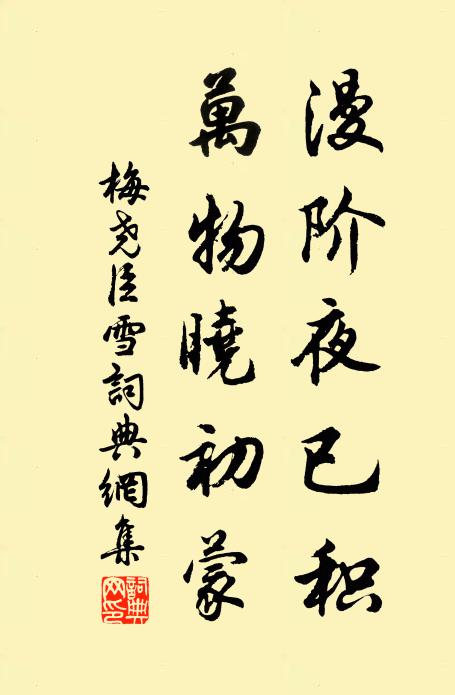 漫阶夜已积
萬物曉初蒙
梅尧臣雪詞典網集
詞典網印